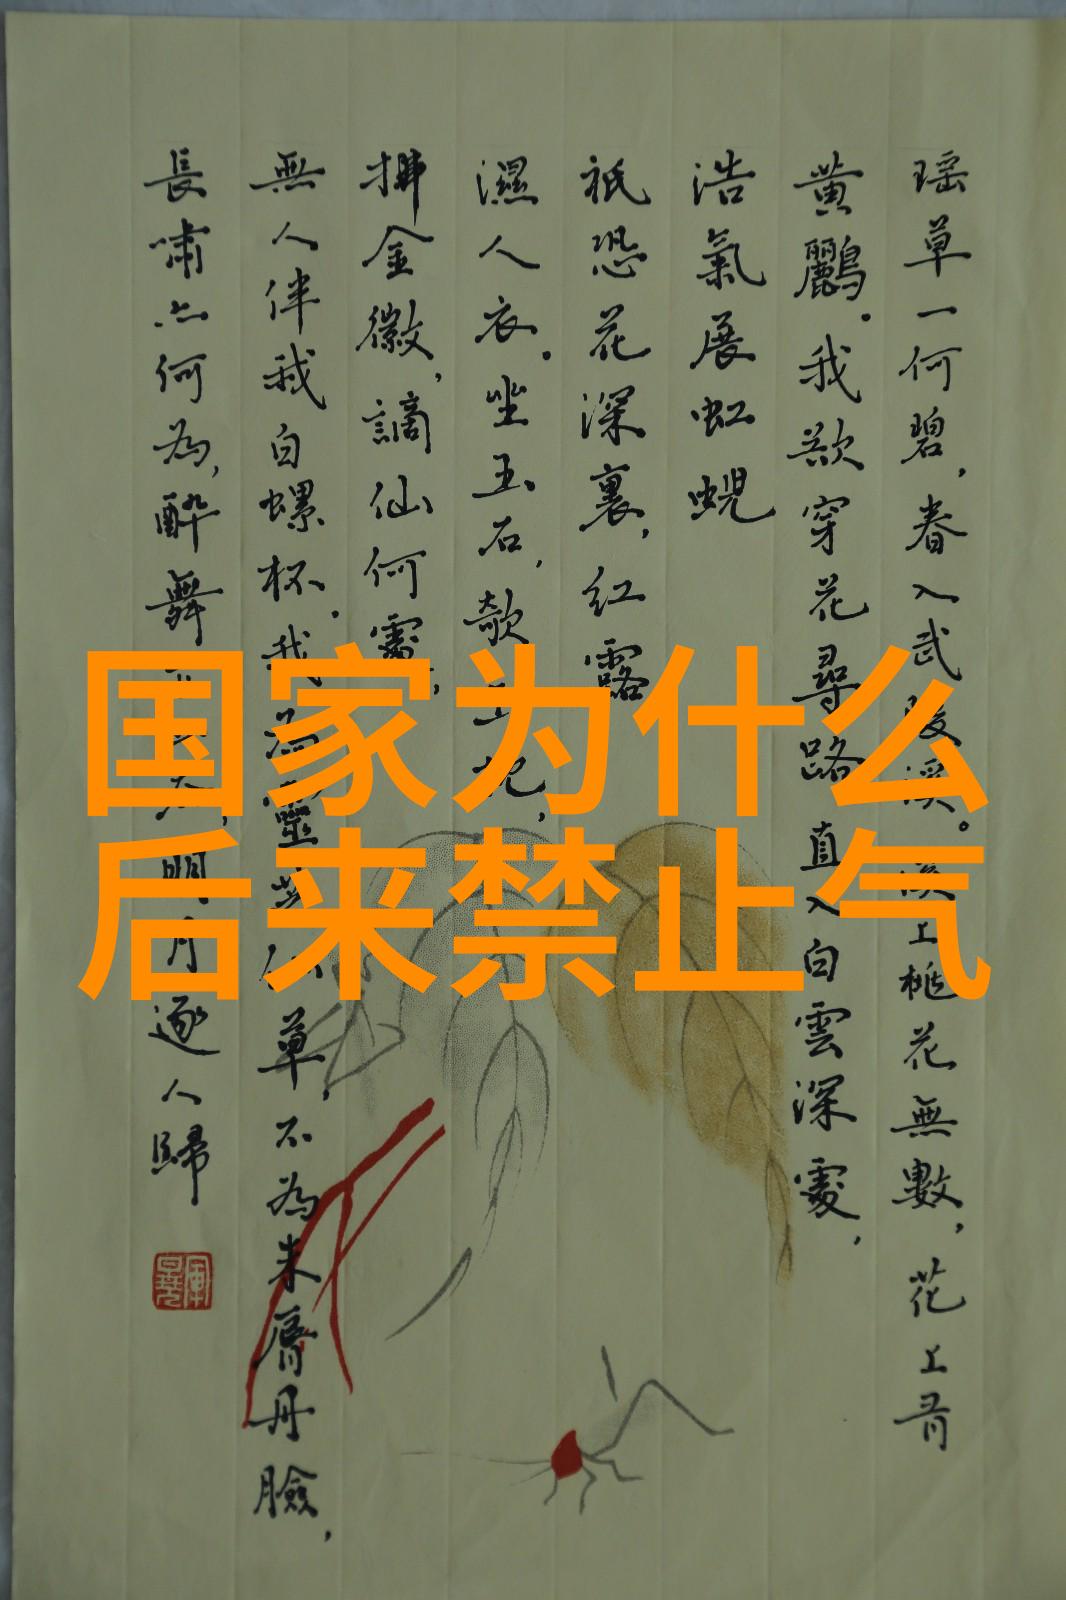 瑶草一何碧，春入武陵溪。溪上桃花無數，花上有
黄鸝。我欲穿花尋路，直入白雲深處，
浩氣展虹蜺
祇恐花深裏，紅露
濕人衣。坐玉石，欹玉枕，
拂金徽，謫仙何處，
無人伴我白螺杯。我為靈芝仙草，不為朱唇丹臉，
長嘯亦何為，醉舞下山去，明月逐人歸
国家为什么
后来禁止气